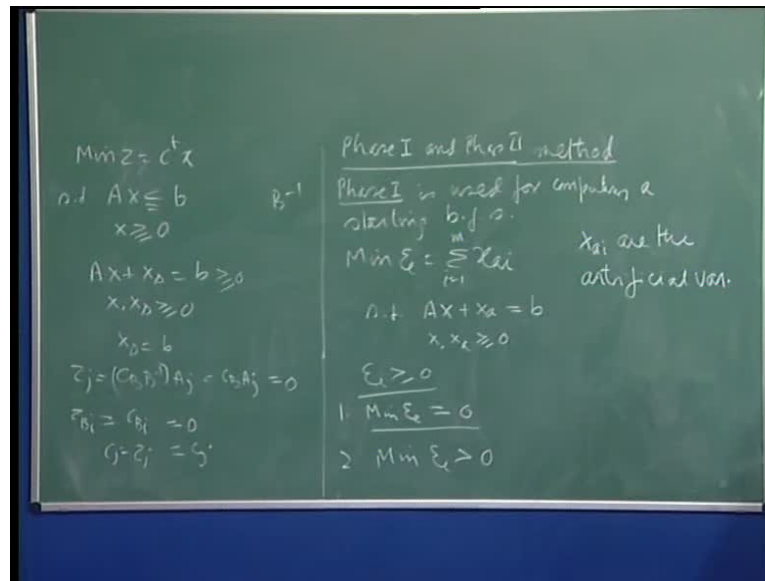 Min Z = cᵗx
s.t Ax ≤ b
x ≥ 0
B⁻¹
Ax + x_s = b ≥ 0
x, x_s ≥ 0
x_s = b
Z_j = (C_B B⁻¹) A_j = C_B A_j = 0
Z_Bi = C_Bi = 0
C_j - Z_j = C_j
Phase I and Phase II method
Phase I is used for computing a
starting b.f.s.
Min ξ = Σ_{i=1}^{m} x_ai
x_ai are the
artificial var.
s.t. Ax + x_a = b
x, x_a ≥ 0
ξ ≥ 0
1. Min ξ = 0
2 Min ξ > 0